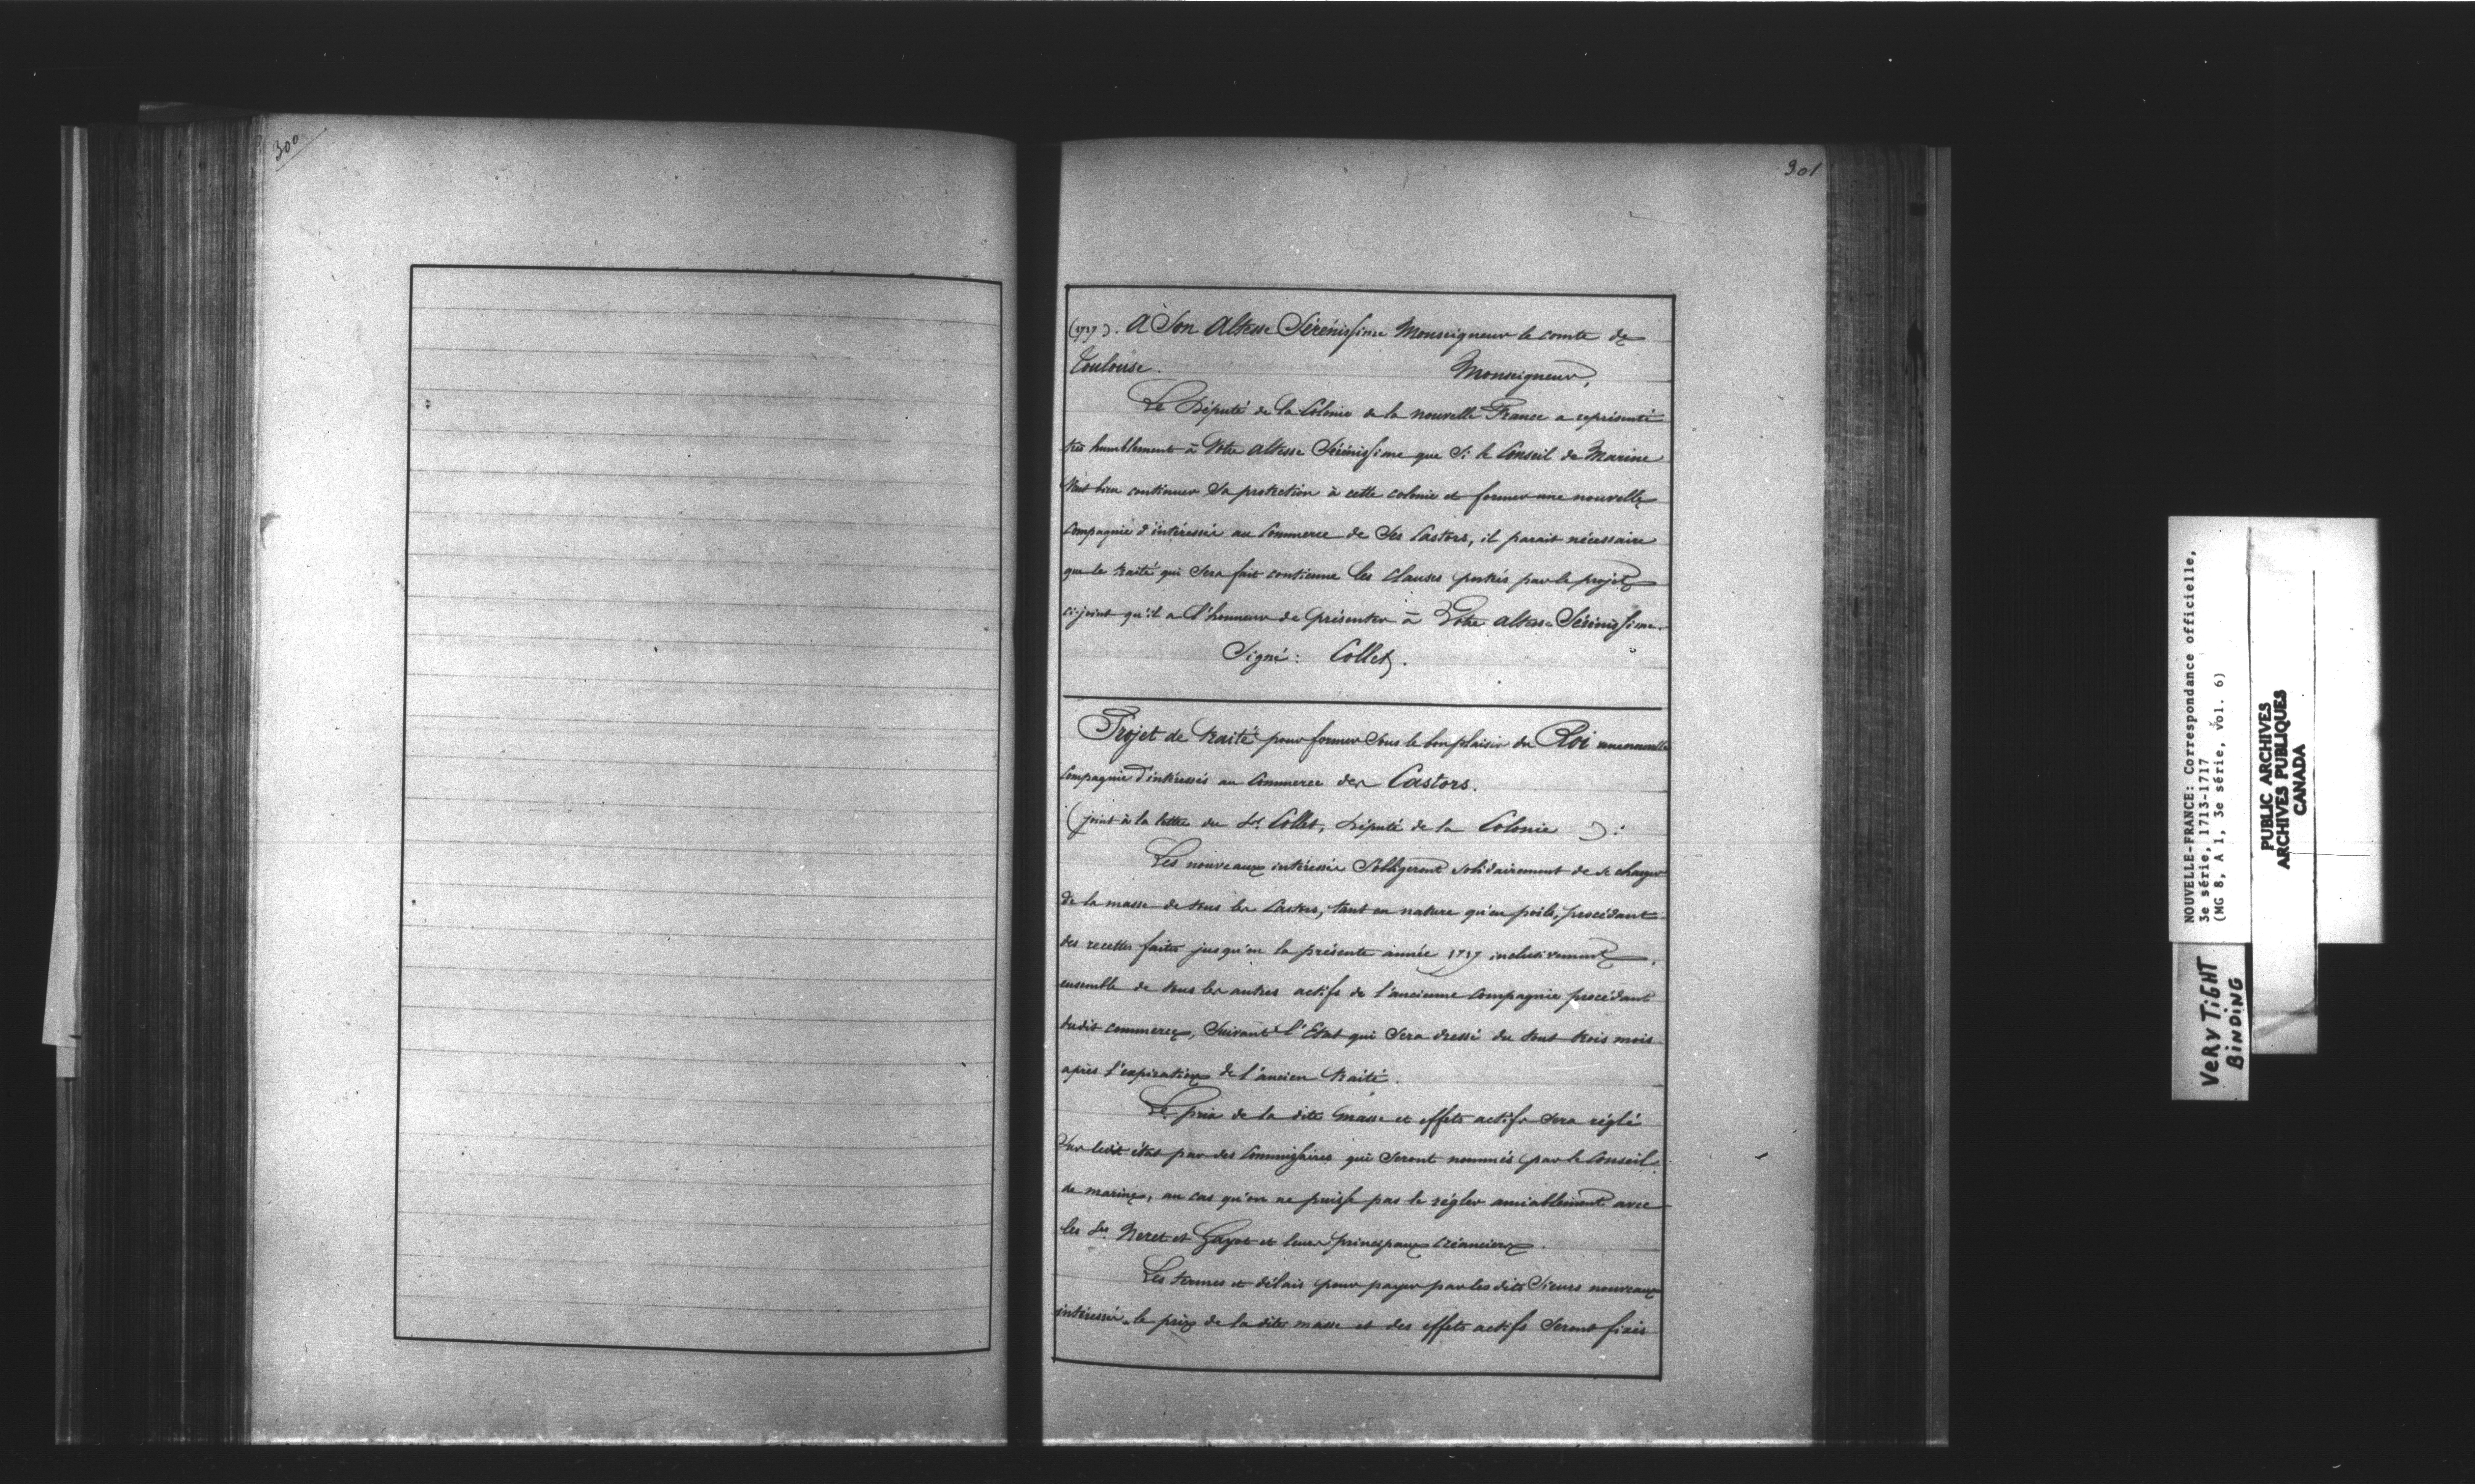 300
301
(1717). A Son Altesse Sérénissime Monseigneur le comte de
Toulouse. Monseigneur,
Le Député de la Colonie de la nouvelle France a représenté
très humblement à Votre Altesse Sérénissime que Si le Conseil de Marine
Veut bien continuer Sa protection à cette colonie et former une nouvelle
Compagnie d'intéressés au Commerce de Ses Castors, il parait nécessaire
que le traité qui Sera fait contienne les Clauses portées par le projet
ci-joint qu'il a l'honneur de présenter à Votre Altesse Sérénissime.
Signé: Collet.
Projet de traité pour former Sous le bon plaisir du Roi une nouvelle
Compagnie d'intéressés au Commerce des Castors.
(joint à la lettre du Sr Collet, Député de la Colonie):
Les nouveaux intéressés S'obligeront solidairement de se charger
de la masse de tous les Castors, tant en nature qu'en poils, procédant
des recettes faites jusqu'en la présente année 1717 inclusivement,
ensemble de tous les autres actifs de l'ancienne Compagnie procédant
dudit commerce, Suivant l'Etat qui Sera dressé du tout trois mois
après l'expiration de l'ancien traité.
Le prix de la dite masse et effets actifs Sera réglé
Sur ledit état par des Commissaires qui Seront nommés par le Conseil
de marine, au cas qu'on ne puisse pas le régler amiablement avec
les Srs Neret et Gayot et leurs principaux créanciers.
Les termes et délais pour payer par les dits Sieurs nouveaux
intéressés le prix de la dite masse et des effets actifs Seront fixés
NOUVELLE-FRANCE: Correspondance officielle,
3e série, 1713-1717
(MG 8, A 1, 3e série, vol. 6)
PUBLIC ARCHIVES
ARCHIVES PUBLIQUES
CANADA
VERY TIGHT
BINDING